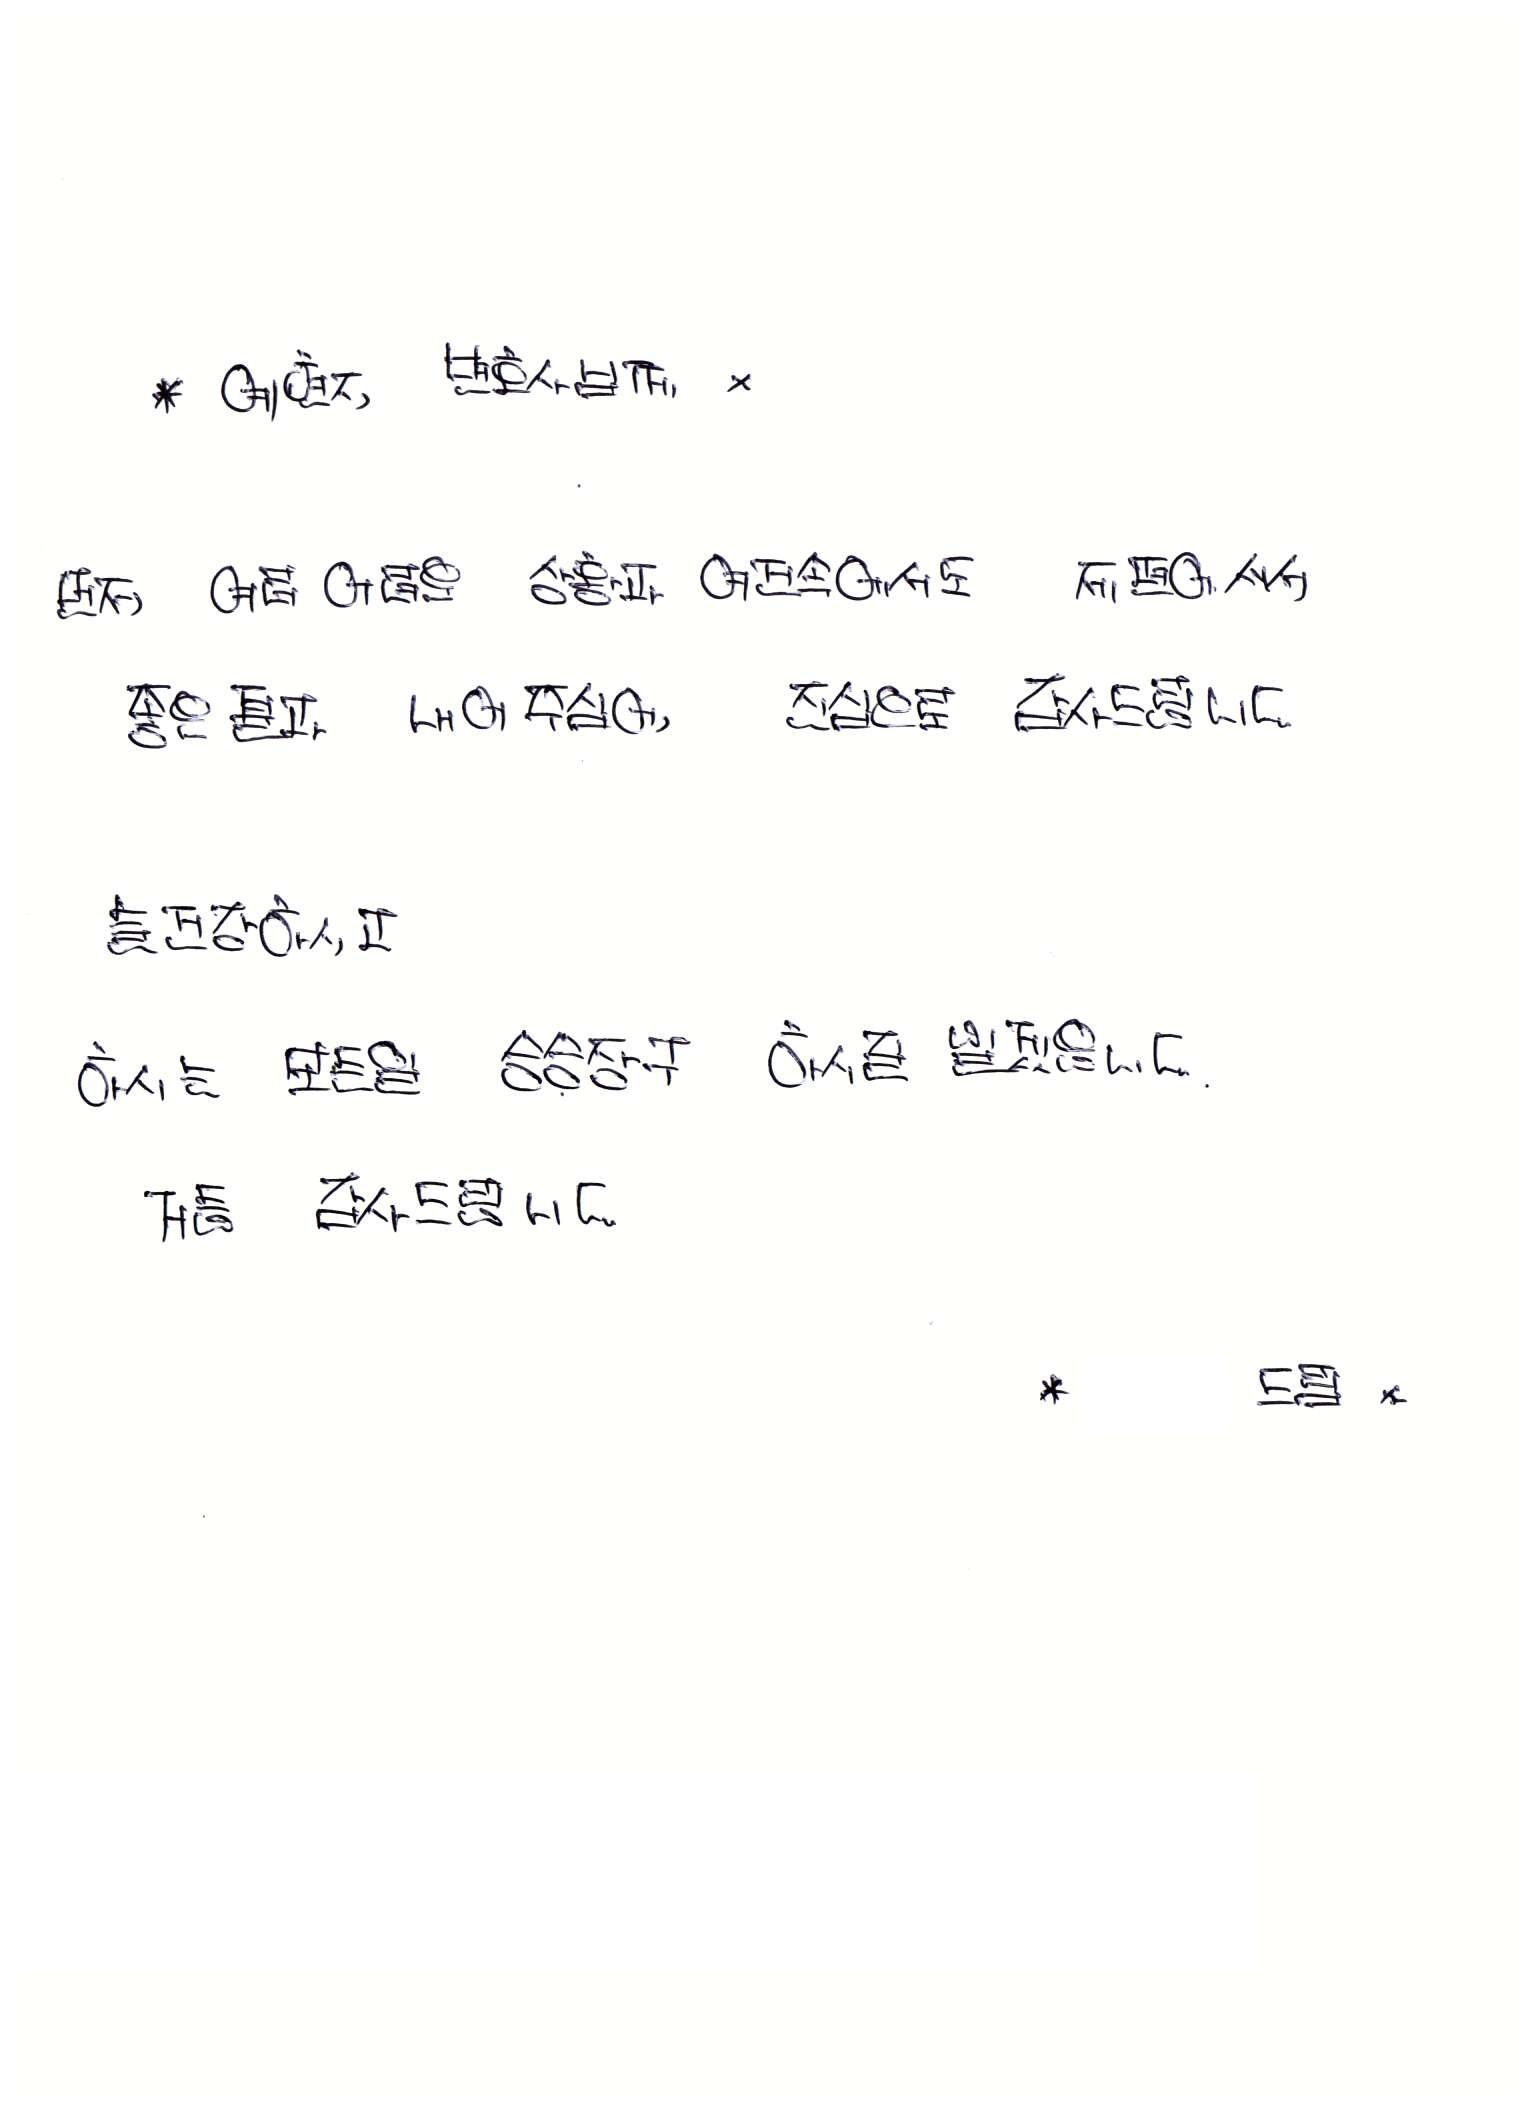 * 예현지 변호사님께 *
먼저 여럽 어렵은 상황과 여건속에서도 제 편에 서서
좋은 결과 내어 주심에 진심으로 감사드립니다
늘 건강하시고
하시는 모든일 승승장구 하시길 빌겠읍니다.
거듭 감사드립니다
* 드림 *